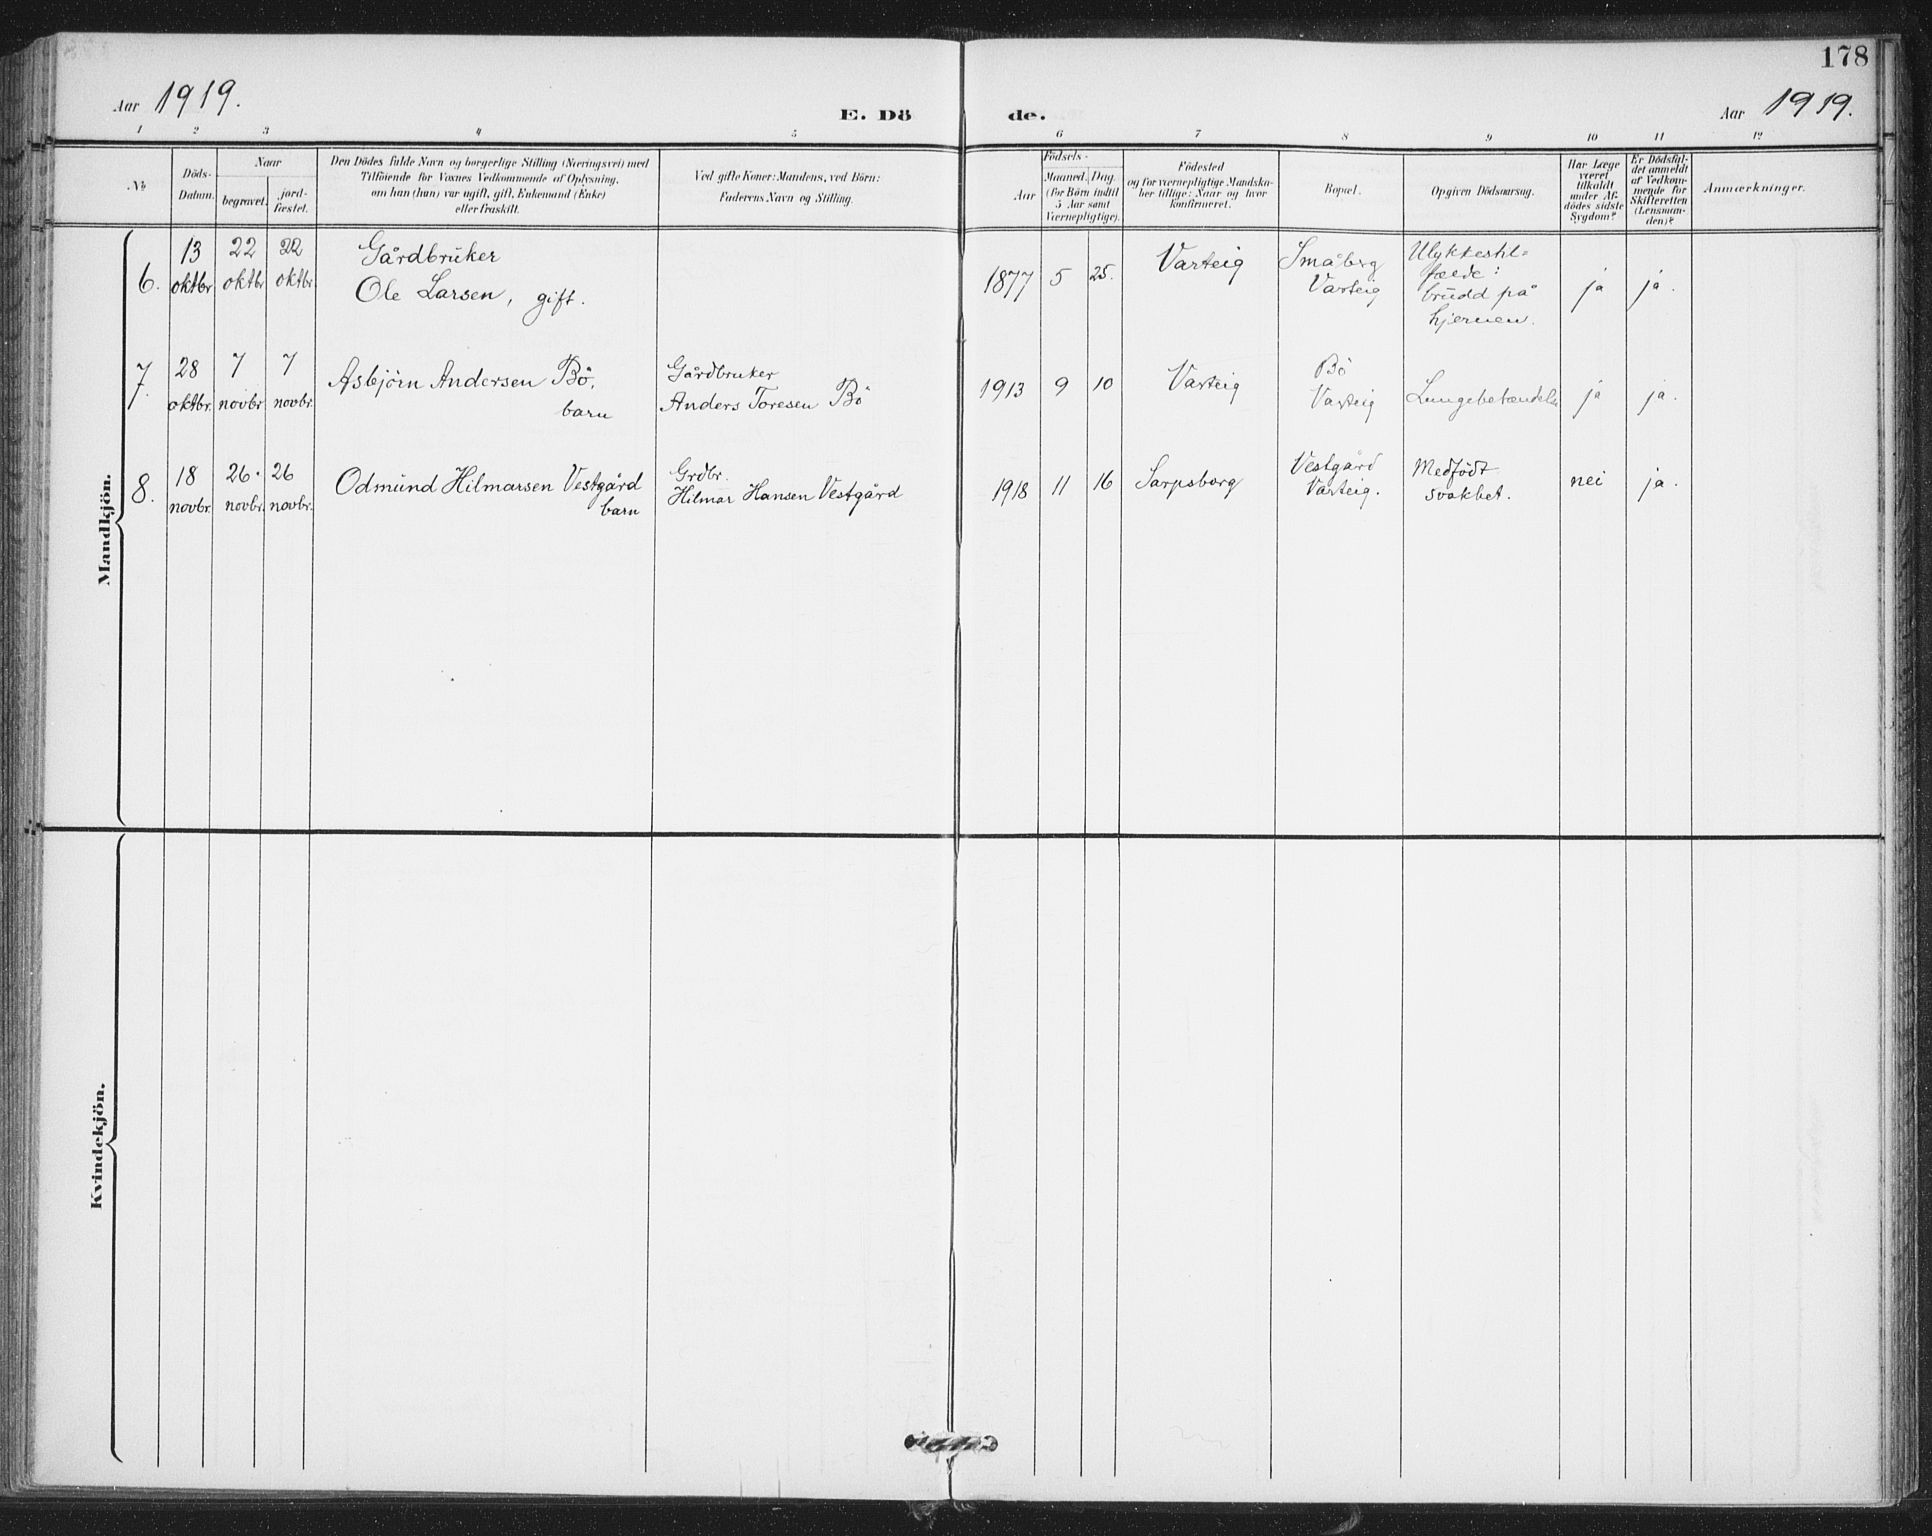 178
Aar 1919.
E. Dö
de.
Aar 1919.
1 2 3 4 5 6 7 8 9 10 11 12
No
Döds-
Datum.
Naar
begravet.
jord-
fæstet.
Den Dödes fulde Navn og borgerlige Stilling (Næringsvei) med
Tilföiende for Voxnes Vedkommende af Oplysning,
om han (hun) var ugift, gift, Enkemand (Enke)
eller fraskilt.
Ved gifte Koner: Mandens, ved Börn:
Faderens Navn og Stilling.
Födsels-
Aar
Maaned. Dag.
(for Börn indtil
5 Aar samt
Værnepligtige).
Födested
og for værnepligtige Mandska-
ber tillige: Naar og hvor
konfirmeret.
Bopæl.
Opgiven Dödsaarsag.
Har Læge
været
tilkaldt
under Af-
dödes sidste
Sygdom?
Er Dödsfal-
det anmeldt
af Vedkom-
mende for
Skifteretten
(Lensman-
den)?
Anmærkninger.
Mandkjön.
6.
13
oktbr
22
oktbr
22
oktbr.
Gårdbruker
Ole Larsen, gift.
1877
5
25.
Varteig
Småberg
Varteig
Ulykkestil-
fælde:
brudd på
hjernen.
ja
ja.
7.
28
oktbr.
7
novbr.
7
novbr.
Asbjörn Andersen Bö,
barn
Gårdbruker
Anders Toresen Bö
1913
9
10
Varteig
Bö
Varteig
Lungebetændelse
ja
ja.
8.
18
novbr.
26.
novbr.
26
novbr.
Odmund Hilmarsen Vestgård
barn
Grdbr.
Hilmar Hansen Vestgård
1918
11
16
Sarpsborg
Vestgård
Varteig.
Medfödt
svakhet.
nei
ja.
Kvindekjön.